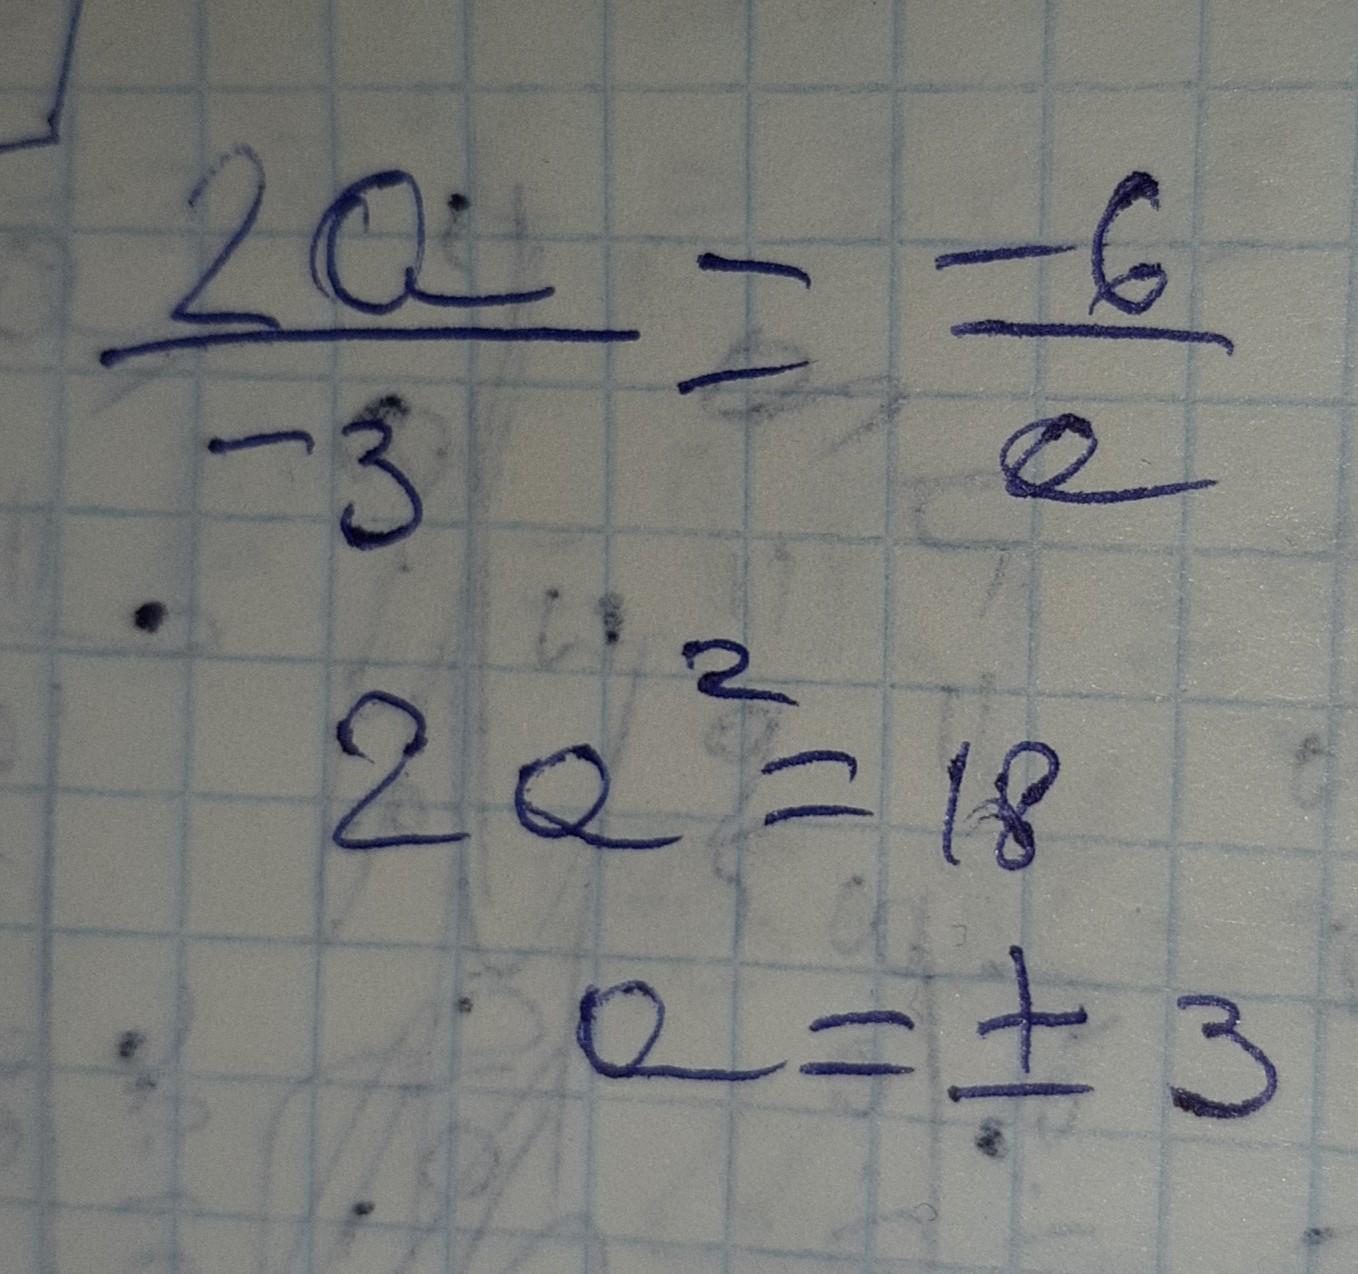 2a/-3 = -6/a
2a² = 18
a = ± 3